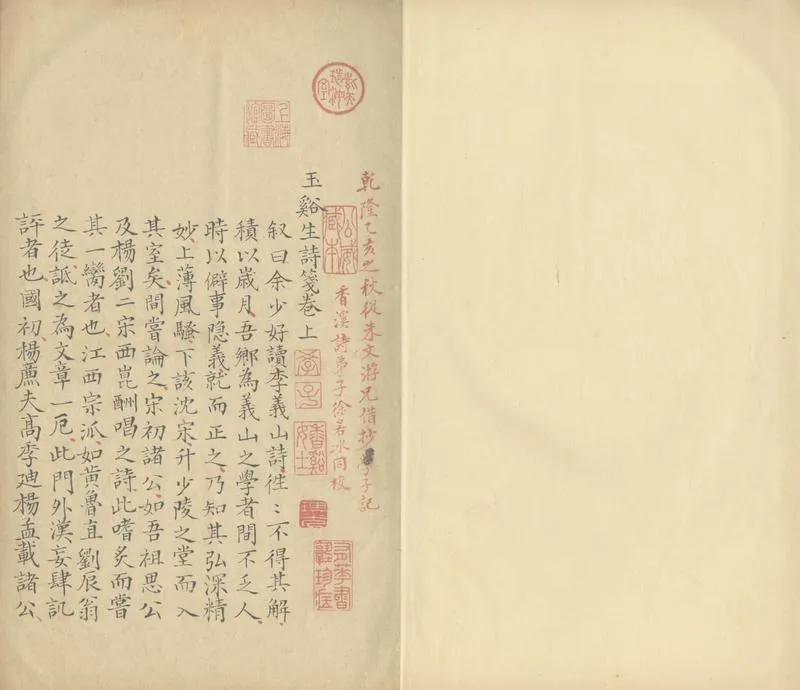 乾隆乙亥之秋從朱文游兄借抄子記
香溪詩弟子徐若冰同校
上海圖書館藏
玉谿生詩箋卷上
叙曰余少好讀李義山詩徃〻不得其解
積以歲月吾鄉為義山之學者間不乏人
時以僻事隐義就而正之乃知其弘深精
妙上薄風騷下該沈宋升少陵之堂而入
其室矣間嘗論之宋初諸公如吾祖思公
及楊劉二宋西崑酬唱之詩此嗜炙而嘗
其一臠者也江西宗派如黄魯直劉辰翁
之徒詆之為文章一厄此門外漢妄肆訊
評者也國初楊廌夫髙季迪楊孟載諸公